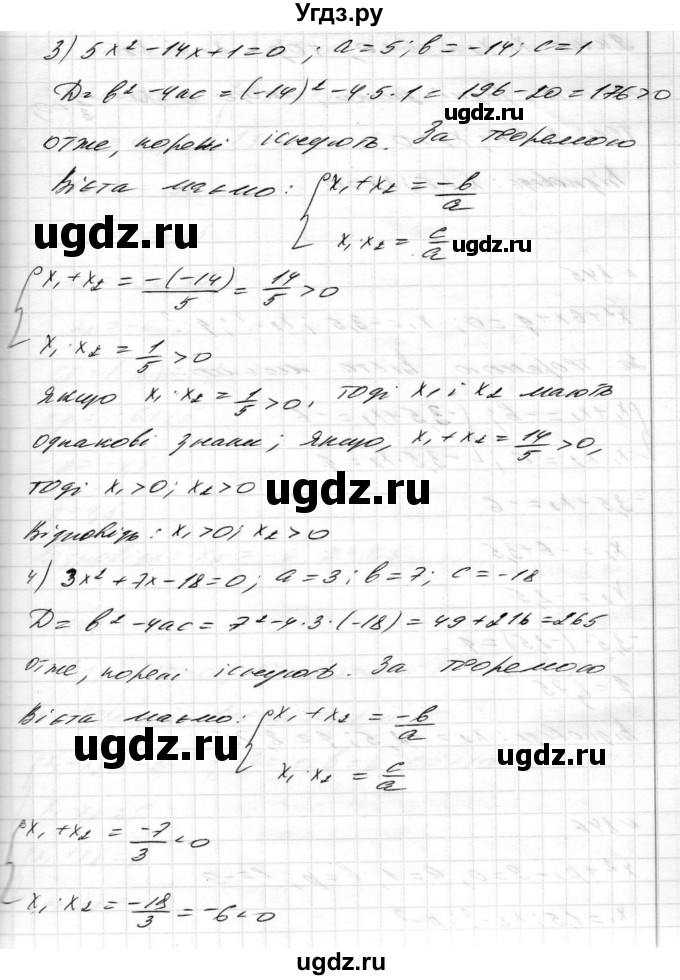 Угдз.ру
3) 5x² - 14x + 1 = 0 ; a = 5; b = -14; c = 1
D = b² - 4ac = (-14)² - 4·5·1 = 196 - 20 = 176 > 0
gdz.ru
отже, корені існують. За теоремою
Вієта маємо: { x₁ + x₂ = -b/a
ugdz.ru
x₁·x₂ = c/a
ugdz.ru
{ x₁ + x₂ = -(-14)/5 = 14/5 > 0
x₁·x₂ = 1/5 > 0
Якщо x₁·x₂ = 1/5 > 0, тоді x₁ і x₂ мають
однакові знаки; якщо, x₁ + x₂ = 14/5 > 0,
тоді x₁ > 0; x₂ > 0
ugdz.ru
Відповідь: x₁ > 0; x₂ > 0
4) 3x² + 7x - 18 = 0; a = 3; b = 7; c = -18
D = b² - 4ac = 7² - 4·3·(-18) = 49 + 216 = 265
Отже, корені існують. За теоремою
Вієта маємо: { x₁ + x₂ = -b/a
ugdz.ru
x₁·x₂ = c/a
ugdz.ru
{ x₁ + x₂ = -7/3 < 0
x₁·x₂ = -18/3 = -6 < 0
ugdz.ru